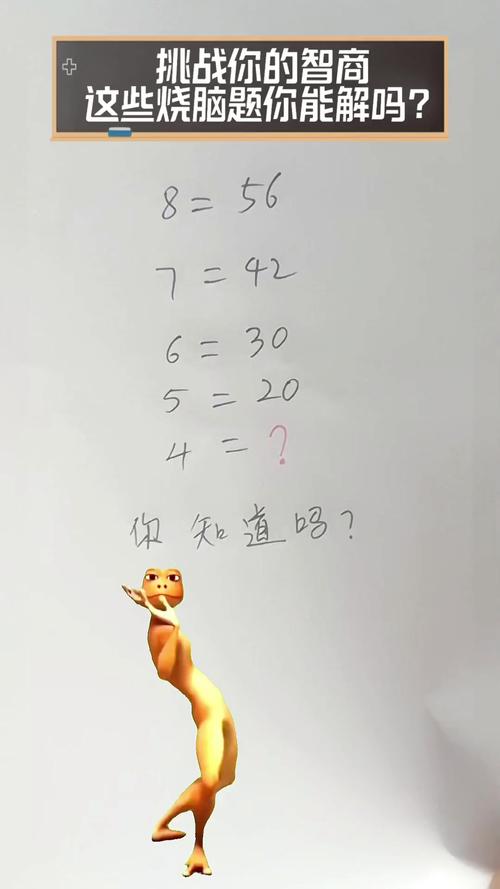 挑战你的智商
这些烧脑题你能解吗?
8 = 56
7 = 42
6 = 30
5 = 20
4 = ?
你知道吗?